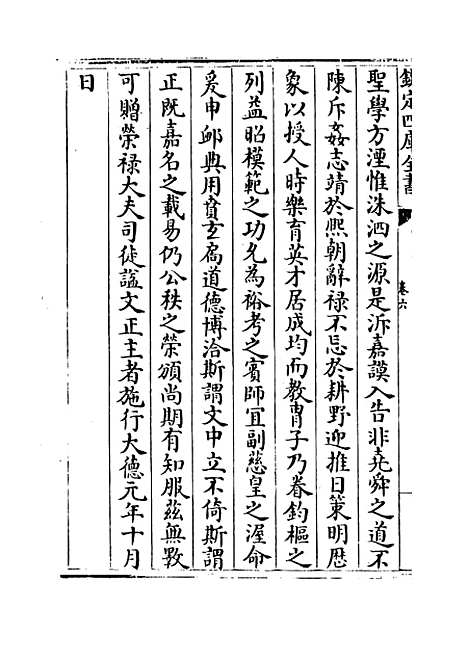 欽定四庫全書
卷六
聖學方湮惟洙泗之源是泝嘉謨入告非堯舜之道不
陳斥姦志靖於熙朝辭祿不忘於耕野迎推日策明厯
象以授人時樂育英才居成均而教胄子乃眷鈞樞之
列益昭模範之功允為裕考之賓師宜副慈皇之渥命
爰申䘏典用賁玄扃道德博洽斯謂文中立不倚斯謂
正既嘉名之載易仍公秩之榮頒尚期有知服兹無斁
可贈榮禄大夫司徒諡文正主者施行大德元年十月
日